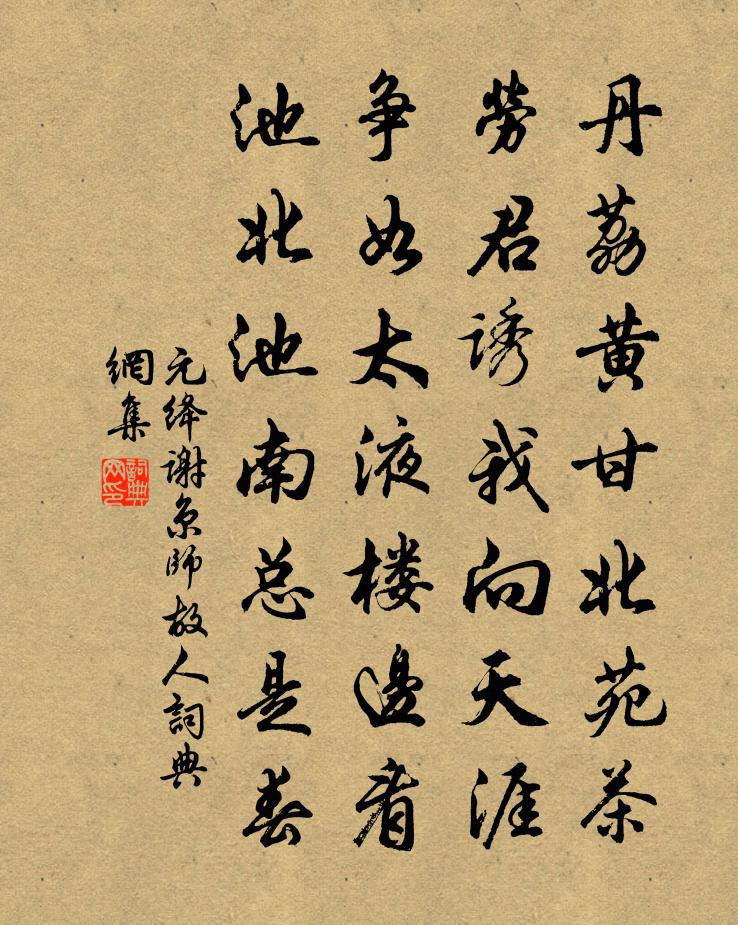 丹荔黄甘北苑茶
劳君诱我向天涯
争如太液楼边看
池北池南总是春
元绛谢京師故人詞典
網集
詞典
网印